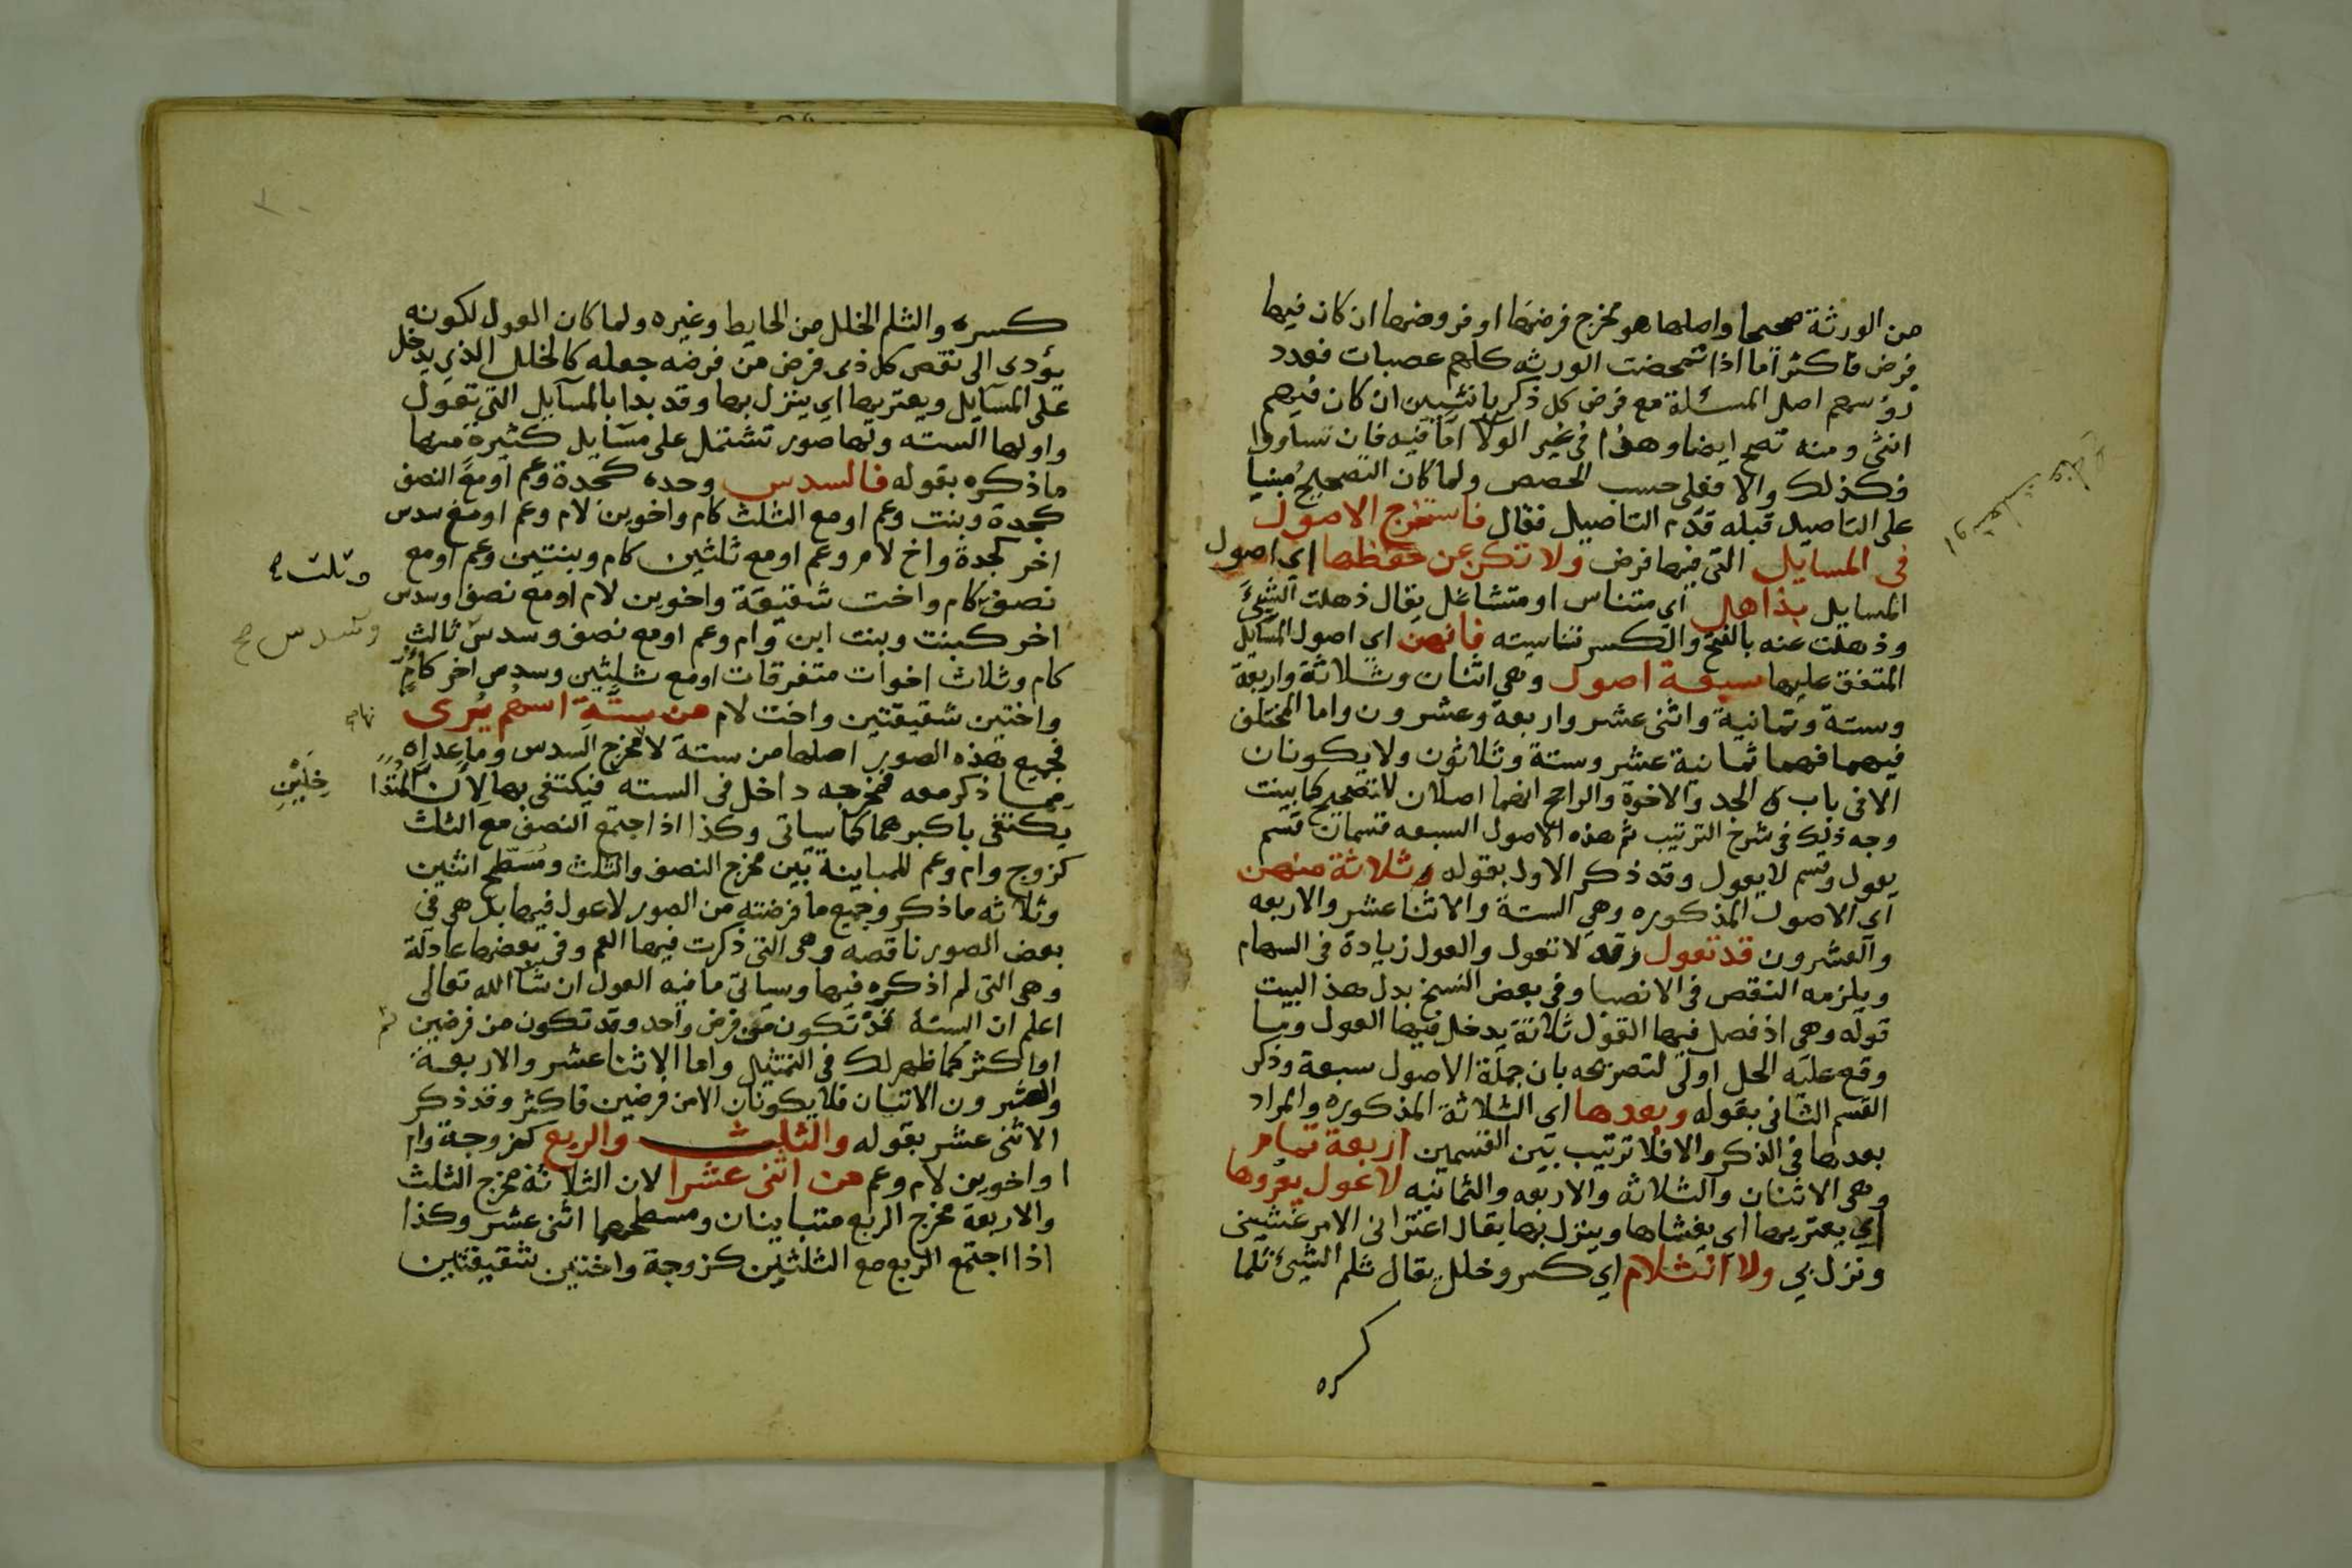 من الورثة صحيحا واصلها هو مخرج فرضها او فروضها ان كان فيها
فرض فاكثر اما اذا تمحضت الورثه كلهم عصبات فعدد
رؤسهم اصل المسئلة مع فرض كل ذكر بانثيين ان كان فيهم
انثى ومنه تصح ايضا وهذا في غير الولآ اما فيه فان تساووا
فكذلك والا فعلى حسب الحصص ولما كان التصحيح مبنيا
على التاصيل قبله قدم التاصيل فقال فاستخرج الاصول
في المسايل التي فيها فرض ولا تكن عن حفظها اي اصول
المسايل بذاهل اي متناس او متشاغل يقال ذهلت الشيئ
وذهلت عنه بالفتح والكسر تناسيته فانهن اي اصول المسايل
المتفق عليها سبعة اصول وهي اثنان وثلاثة واربعة
وستة وثمانية واثني عشر واربعة وعشرون واما المختلف
فيهما فهما ثمانية عشر وستة وثلاثون ولا يكونان
الا في باب الجد والاخوة والراجح انهما اصلان لا تصحيح كما بينت
وجه ذلك في شرح الترتيب ثم هذه الاصول السبعه قسمان قسم
يعول وقسم لا يعول وقد ذكر الاول بقوله وثلاثة منهن
اي الاصول المذكوره وهي الستة والاثنا عشر والاربعه
والعشرون قد تعول وقد لا تعول والعول زيادة في السهام
ويلزمه النقص في الانصبا وفي بعض النسخ بدل هذا البيت
قوله وهي اذ فصل فيها القول ثلاثة يدخل فيها العول وما
وقع عليه الحل اولى لتصريحه بان جملة الاصول سبعة وذكر
القسم الثاني بقوله وبعدها اي الثلاثة المذكوره والمراد
بعدها في الذكر والا فلا ترتيب بين القسمين اربعة تمام
وهي الاثنان والثلاثه والاربعه والثمانيه لا عول يعروها
اي يعتريها اي يغشاها وينزل بها يقال اعتراني الامر غشيني
ونزل بي ولا انثلام اي كسر وخلل يقال ثلم الشيئ ثلما
كسره
كسره والثلم الخلل من الحايط وغيره ولما كان العول لكونه
يؤدى الى نقص كل ذى فرض من فرضه جعله كالخلل الذي يدخل
على المسآيل ويعتريها اي ينزل بها وقد بدا بالمسآيل التي تعول
واولها السته ولها صور تشتمل على مسآيل كثيرة منها
ما ذكره بقوله فالسدس وحده كجدة وعم او مع النصف
كجدة وبنت وعم او مع الثلث كام واخوين لام وعم او مع سدس
اخر كجدة واخ لام وعم او مع ثلثين كام وبنتين وعم او مع
وثلث
نصف كام واخت شقيقة واخوين لام او مع نصف وسدس
اخر كبنت وبنت ابن وام وعم او مع نصف وسدس ثالث
وسدس صح
كام وثلاث اخوات متفرقات او مع ثلثين وسدس اخر كام
واختين شقيقتين واخت لام من ستة اسهم يرى
فجميع هذه الصور اصلها من ستة لا مخرج السدس وما عداه
مما ذكر معه فمخرجه داخل في السته فيكتفى بها لان المتدا
خلين
يكتفى باكبرهما كما سياتى وكذا اذا اجتمع النصف مع الثلث
كزوج وام وعم للمباينة بين مخرج النصف والثلث ومسطح اثنين
وثلاثه ما ذكر وجميع ما فرضته من الصور لا عول فيها بل هى في
بعض الصور ناقصه وهى التى ذكرت فيها العم وفي بعضها عادلة
وهى التى لم اذكره فيها وسياتى ما فيه العول ان شآ الله تعالى
اعلم ان الستة قد تكون من فرض واحد وقد تكون من فرضين
ثم
او اكثر كما ظهر لك في التمثيل واما الاثنا عشر والاربعة
والعشرون الاتيان فلا يكونان الا من فرضين فاكثر وقد ذكر
الاثنى عشر بقوله والثلث والربع كزوجة وام
او اخوين لام وعم من اثنى عشرا لان الثلاثة مخرج الثلث
والاربعة مخرج الربع متباينان ومسطحهما اثنى عشر وكذا
اذا اجتمع الربع مع الثلثين كزوجة واختين شقيقتين